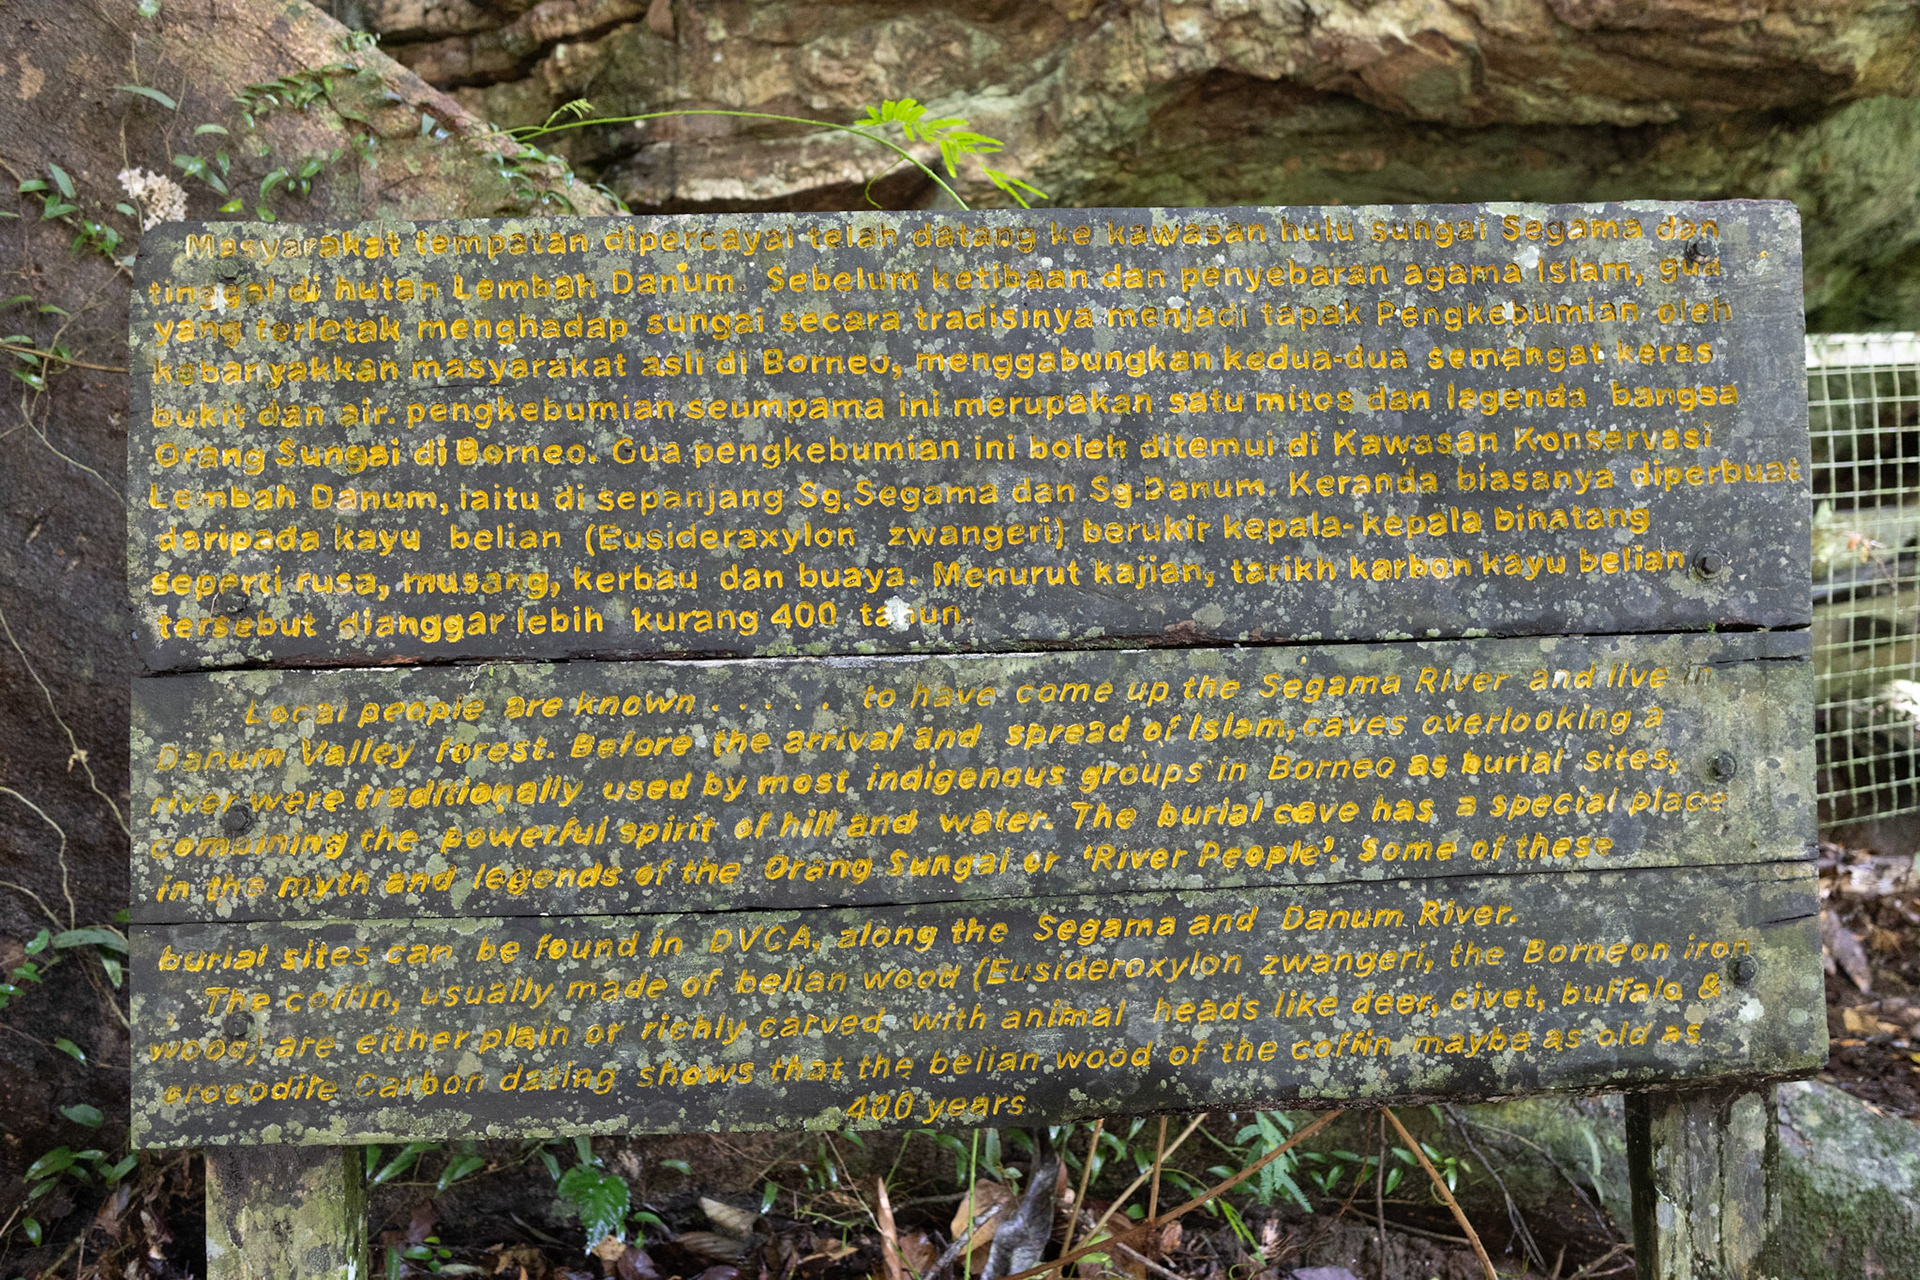 Masyarakat tempatan dipercayai telah datang ke kawasan hulu sungai Segama dan
tinggal di hutan Lembah Danum. Sebelum ketibaan dan penyebaran agama Islam, gua
yang terletak menghadap sungai secara tradisinya menjadi tapak Pengkebumian oleh
kebanyakkan masyarakat asli di Borneo, menggabungkan kedua-dua semangat keras
bukit dan air. pengkebumian seumpama ini merupakan satu mitos dan lagenda bangsa
Orang Sungai di Borneo. Gua pengkebumian ini boleh ditemui di Kawasan Konservasi
Lembah Danum, iaitu di sepanjang Sg.Segama dan Sg.Danum. Keranda biasanya diperbuat
daripada kayu belian (Eusideraxylon zwangeri) berukir kepala-kepala binatang
seperti rusa, musang, kerbau dan buaya. Menurut kajian, tarikh karbon kayu belian
tersebut dianggar lebih kurang 400 tahun.
Local people are known . . . . . to have come up the Segama River and live in
Danum Valley forest. Before the arrival and spread of Islam, caves overlooking a
river were traditionally used by most indigenous groups in Borneo as burial sites,
combining the powerful spirit of hill and water. The burial cave has a special place
in the myth and legends of the Orang Sungai or 'River People'. Some of these
burial sites can be found in DVCA, along the Segama and Danum River.
The coffin, usually made of belian wood (Eusideroxylon zwangeri, the Borneon iron
wood) are either plain or richly carved with animal heads like deer, civet, buffalo &
crocodile Carbon dating shows that the belian wood of the coffin maybe as old as
400 years